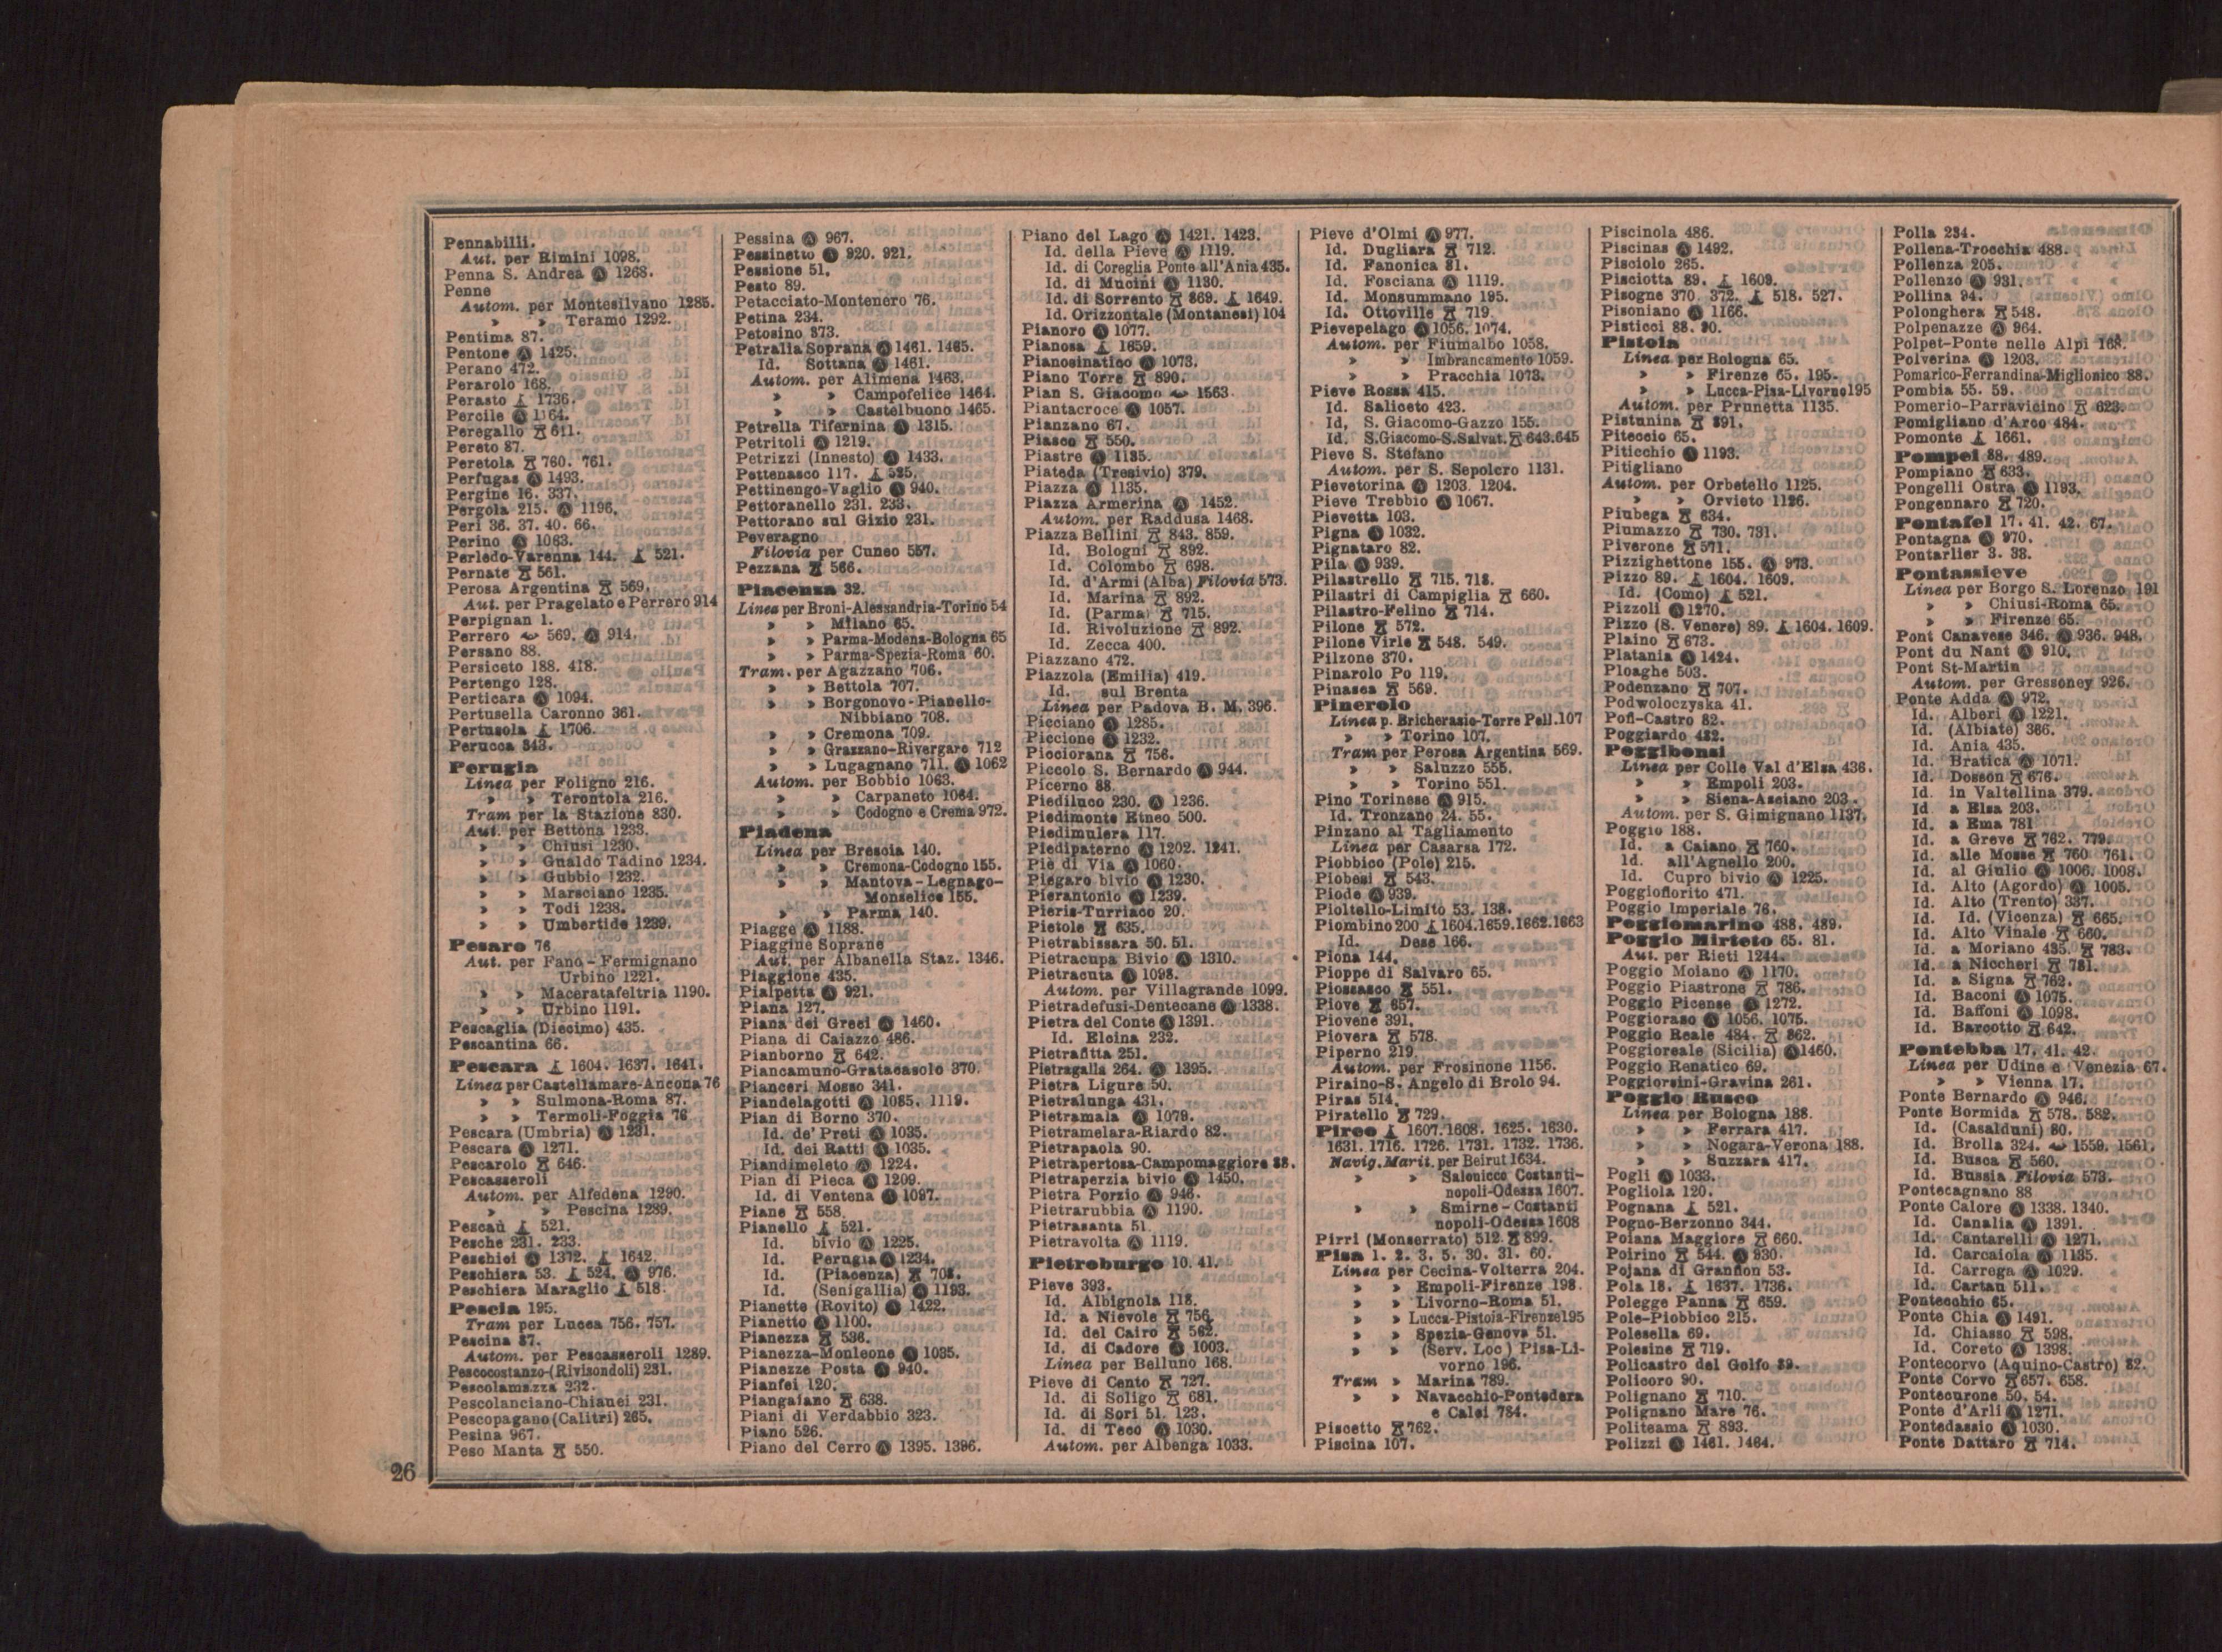 Pennabilli.
Aut. per Rimini 1098.
Penna S. Andrea Ⓐ 1268.
Penne
Autom. per Montesilvano 1285.
» » Teramo 1292.
Pentima 87.
Pentone Ⓐ 1425.
Perano 472.
Perarolo 168.
Perasto 1736.
Percile Ⓐ 1164.
Peregallo 611.
Pereto 87.
Peretola 760. 761.
Perfugas Ⓐ 1493.
Pergine 16. 337.
Pergola 215. Ⓐ 1196.
Peri 36. 37. 40. 66.
Perino Ⓐ 1063.
Perledo-Varenna 144. 521.
Pernate 561.
Perosa Argentina 569.
Aut. per Pragelato e Perrero 914
Perpignan 1.
Perrero 569. Ⓐ 914.
Persano 88.
Persiceto 188. 418.
Pertengo 128.
Perticara Ⓐ 1094.
Pertusella Caronno 361.
Pertusola 1706.
Perucca 343.
Perugia
Linea per Foligno 216.
» » Terontola 216.
Tram per la Stazione 830.
Aut. per Bettona 1233.
» » Chiusi 1230.
» » Gualdo Tadino 1234.
» » Gubbio 1232.
» » Marsciano 1235.
» » Todi 1238.
» » Umbertide 1239.
Pesaro 76
Aut. per Fano - Fermignano
Urbino 1221.
» » Maceratafeltria 1190.
» » Urbino 1191.
Pescaglia (Diecimo) 435.
Pescantina 66.
Pescara 1604. 1637. 1641.
Linea per Castellamare-Ancona 76
» » Sulmona-Roma 87.
» » Termoli-Foggia 76
Pescara (Umbria) Ⓐ 1231.
Pescara Ⓐ 1271.
Pescarolo 646.
Pescasseroli
Autom. per Alfedena 1290.
» » Pescina 1289.
Pescaù 521.
Pesche 231. 233.
Peschici Ⓐ 1372. 1642.
Peschiera 53. 524. Ⓐ 976.
Peschiera Maraglio 518.
Pescia 195.
Tram per Lucca 756. 757.
Pescina 87.
Autom. per Pescasseroli 1289.
Pescocostanzo-(Rivisondoli) 231.
Pescolamazza 232.
Pescolanciano-Chiauci 231.
Pescopagano (Calitri) 265.
Pesina 967.
Peso Manta 550.
Pessina Ⓐ 967.
Pessinetto Ⓐ 920. 921.
Pessione 51.
Pesto 89.
Petacciato-Montenero 76.
Petina 234.
Petosino 373.
Petralia Soprana Ⓐ 1461. 1465.
Id. Sottana Ⓐ 1461.
Autom. per Alimena 1463.
» » Campofelice 1464.
» » Castelbuono 1465.
Petrella Tifernina Ⓐ 1315.
Petritoli Ⓐ 1219.
Petrizzi (Innesto) Ⓐ 1433.
Pettenasco 117. 525.
Pettinengo-Vaglio Ⓐ 940.
Pettoranello 231. 233.
Pettorano sul Gizio 231.
Peveragno
Filovia per Cuneo 557.
Pezzana 566.
Piacenza 32.
Linea per Broni-Alessandria-Torino 54
» » Milano 65.
» » Parma-Modena-Bologna 65
» » Parma-Spezia-Roma 60.
Tram. per Agazzano 706.
» » Bettola 707.
» » Borgonovo - Pianello-
Nibbiano 708.
» » Cremona 709.
» » Grazzano-Rivergaro 712
» » Lugagnano 711. Ⓐ 1062
Autom. per Bobbio 1063.
» » Carpaneto 1064.
» » Codogno e Crema 972.
Piadena
Linea per Brescia 140.
» » Cremona-Codogno 155.
» » Mantova - Legnago-
Monselice 155.
» » Parma 140.
Piagge Ⓐ 1188.
Piaggine Soprane
Aut. per Albanella Staz. 1346.
Piaggione 435.
Pialpetta Ⓐ 921.
Piana 127.
Piana dei Greci Ⓐ 1460.
Piana di Caiazzo 486.
Pianborno 642.
Piancamuno-Gratacasolo 370.
Pianceri Mosso 341.
Piandelagotti Ⓐ 1085. 1119.
Pian di Borno 370.
Id. de' Preti Ⓐ 1035.
Id. dei Ratti Ⓐ 1035.
Piandimeleto Ⓐ 1224.
Pian di Pieca Ⓐ 1209.
Id. di Ventena Ⓐ 1097.
Piane 558.
Pianello 521.
Id. bivio Ⓐ 1225.
Id. Perugia Ⓐ 1234.
Id. (Piacenza) 708.
Id. (Senigallia) Ⓐ 1193.
Pianette (Rovito) Ⓐ 1422.
Pianetto Ⓐ 1100.
Pianezza 536.
Pianezza-Monleone Ⓐ 1035.
Pianezze Posta Ⓐ 940.
Pianfei 120.
Piangaiano 638.
Piani di Verdabbio 323.
Piano 526.
Piano del Cerro Ⓐ 1395. 1396.
Piano del Lago Ⓐ 1421. 1423.
Id. della Pieve Ⓐ 1119.
Id. di Coreglia Ponte all'Ania 435.
Id. di Mucini Ⓐ 1130.
Id. di Sorrento 869. 1649.
Id. Orizzontale (Montanesi) 104
Pianoro Ⓐ 1077.
Pianosa 1659.
Pianosinatico Ⓐ 1073.
Piano Torre 890.
Pian S. Giacomo 1563
Piantacroce Ⓐ 1057.
Pianzano 67.
Piasco 550.
Piastre Ⓐ 1135.
Piateda (Tresivio) 379.
Piazza Ⓐ 1135.
Piazza Armerina Ⓐ 1452.
Autom. per Raddusa 1468.
Piazza Bellini 843. 859.
Id. Bologni 892.
Id. Colombo 698.
Id. d'Armi (Alba) Filovia 573.
Id. Marina 892.
Id. (Parma) 715.
Id. Rivoluzione 892.
Id. Zecca 400.
Piazzano 472.
Piazzola (Emilia) 419.
Id. sul Brenta
Linea per Padova B. M. 396.
Picciano Ⓐ 1285.
Piccione Ⓐ 1232.
Picciorana 756.
Piccolo S. Bernardo Ⓐ 944.
Picerno 88.
Piediluco 230. Ⓐ 1236.
Piedimonte Etneo 500.
Piedimulera 117.
Piedipaterno Ⓐ 1202. 1241.
Piè di Via Ⓐ 1060.
Piegaro bivio Ⓐ 1230.
Pierantonio Ⓐ 1239.
Pieris-Turriaco 20.
Pietole 635.
Pietrabissara 50. 51.
Pietracupa Bivio Ⓐ 1310.
Pietracuta Ⓐ 1098.
Autom. per Villagrande 1099.
Pietradefusi-Dentecane Ⓐ 1338.
Pietra del Conte Ⓐ 1391.
Id. Elcina 232.
Pietrafitta 251.
Pietragalla 264. Ⓐ 1395.
Pietra Ligure 50.
Pietralunga 431.
Pietramala Ⓐ 1079.
Pietramelara-Riardo 82.
Pietrapaola 90.
Pietrapertosa-Campomaggiore 88.
Pietraperzia bivio Ⓐ 1450.
Pietra Porzio Ⓐ 946.
Pietrarubbia Ⓐ 1190.
Pietrasanta 51.
Pietravolta Ⓐ 1119.
Pietroburgo 10. 41.
Pieve 393.
Id. Albignola 118.
Id. a Nievole 756.
Id. del Cairo 562.
Id. di Cadore Ⓐ 1003.
Linea per Belluno 168.
Pieve di Cento 727.
Id. di Soligo 681.
Id. di Sori 51. 123.
Id. di Teco Ⓐ 1030.
Autom. per Albenga 1033.
Pieve d'Olmi Ⓐ 977.
Id. Dugliara 712.
Id. Fanonica 81.
Id. Fosciana Ⓐ 1119.
Id. Monsummano 195.
Id. Ottoville 719.
Pievepelago Ⓐ 1056. 1074.
Autom. per Fiumalbo 1058.
» » Imbrancamento 1059.
» » Pracchia 1073.
Pieve Rossa 415.
Id. Saliceto 423.
Id, S. Giacomo-Gazzo 155.
Id. S.Giacomo-S.Salvat. 643.645
Pieve S. Stefano
Autom. per S. Sepolcro 1131.
Pievetorina Ⓐ 1203. 1204.
Pieve Trebbio Ⓐ 1067.
Pievetta 103.
Pigna Ⓐ 1032.
Pignataro 82.
Pila Ⓐ 939.
Pilastrello 715. 718.
Pilastri di Campiglia 660.
Pilastro-Felino 714.
Pilone 572.
Pilone Virle 548. 549.
Pilzone 370.
Pinarolo Po 119.
Pinasca 569.
Pinerolo
Linea p. Bricherasio-Torre Pell.107
» » Torino 107.
Tram per Perosa Argentina 569.
» » Saluzzo 555.
» » Torino 551.
Pino Torinese Ⓐ 915.
Id. Tronzano 24. 55.
Pinzano al Tagliamento
Linea per Casarsa 172.
Piobbico (Pole) 215.
Piobesi 543.
Piode Ⓐ 939.
Pioltello-Limito 53. 138.
Piombino 200 1604.1659.1662.1663
Id. Dese 166.
Piona 144.
Pioppe di Salvaro 65.
Piossasco 551.
Piove 657.
Piovene 391.
Piovera 578.
Piperno 219
Autom. per Frosinone 1156.
Piraino-S. Angelo di Brolo 94.
Piras 514.
Piratello 729.
Pireo 1607. 1608. 1625. 1630.
1631. 1716. 1726. 1731. 1732. 1736.
Navig. Marit. per Beirut 1634.
» » Salonicco Costanti-
nopoli-Odessa 1607.
» » Smirne - Costanti
nopoli-Odessa 1608
Pirri (Monserrato) 512. 899.
Pisa 1. 2. 3. 5. 30. 31. 60.
Linea per Cecina-Volterra 204.
» » Empoli-Firenze 198.
» » Livorno-Roma 51.
» » Lucca-Pistoia-Firenze195
» » Spezia-Genova 51.
» » (Serv. Loc) Pisa-Li-
vorno 196.
Tram » Marina 789.
» » Navacchio-Pontedera
e Calci 784.
Piscetto 762.
Piscina 107.
Piscinola 486.
Piscinas Ⓐ 1492.
Pisciolo 265.
Pisciotta 89. 1609.
Pisogne 370. 372. 518. 527.
Pisoniano Ⓐ 1166.
Pisticci 88. 90.
Pistoia
Linea per Bologna 65.
» » Firenze 65. 195.
» » Lucca-Pisa-Livorno195
Autom. per Prunetta 1135.
Pistunina 891.
Piteccio 65.
Piticchio Ⓐ 1193.
Pitigliano
Autom. per Orbetello 1125.
» » Orvieto 1126.
Piubega 634.
Piumazzo 730. 731.
Piverone 571.
Pizzighettone 155. Ⓐ 973.
Pizzo 89. 1604. 1609.
Id. (Como) 521.
Pizzoli Ⓐ 1270.
Pizzo (S. Venere) 89. 1604. 1609.
Plaino 673.
Platania Ⓐ 1424.
Ploaghe 503.
Podenzano 707.
Podwoloczyska 41.
Pofi-Castro 82.
Poggiardo 482.
Poggibonsi
Linea per Colle Val d'Elsa 436.
» » Empoli 203.
» » Siena-Asciano 203.
Autom. per S. Gimignano 1137.
Poggio 188.
Id. a Caiano 760.
Id. all'Agnello 200.
Id. Cupro bivio Ⓐ 1225.
Poggiofiorito 471.
Poggio Imperiale 76.
Poggiomarino 488. 489.
Poggio Mirteto 65. 81.
Aut. per Rieti 1244.
Poggio Moiano Ⓐ 1170.
Poggio Piastrone 786.
Poggio Picense Ⓐ 1272.
Poggioraso Ⓐ 1056. 1075.
Poggio Reale 484. 862.
Poggioreale (Sicilia) Ⓐ 1460.
Poggio Renatico 69.
Poggiorsini-Gravina 261.
Poggio Rusco
Linea per Bologna 188.
» » Ferrara 417.
» » Nogara-Verona 188.
» » Suzzara 417.
Pogli Ⓐ 1033.
Pogliola 120.
Pognana 521.
Pogno-Berzonno 344.
Poiana Maggiore 660.
Poirino 544. Ⓐ 930.
Pojana di Granfion 53.
Pola 18. 1637. 1736.
Polegge Panna 659.
Pole-Piobbico 215.
Polesella 69.
Polesine 719.
Policastro del Golfo 89.
Policoro 90.
Polignano 710.
Polignano Mare 76.
Politeama 893.
Polizzi Ⓐ 1461. 1464.
Polla 234.
Pollena-Trocchia 488.
Pollenza 205.
Pollenzo Ⓐ 931.
Pollina 94.
Polonghera 548.
Polpenazze Ⓐ 964.
Polpet-Ponte nelle Alpi 168.
Polverina Ⓐ 1203.
Pomarico-Ferrandina-Miglionico 88.
Pombia 55. 59.
Pomerio-Parravicino 623.
Pomigliano d'Arco 484.
Pomonte 1661.
Pompei 88. 489.
Pompiano 633.
Pongelli Ostra Ⓐ 1193.
Pongennaro 720.
Pontafel 17. 41. 42. 67.
Pontagna Ⓐ 970.
Pontarlier 3. 33.
Pontassieve
Linea per Borgo S. Lorenzo 191
» » Chiusi-Roma 65.
» » Firenze 65.
Pont Canavese 346. Ⓐ 936. 948.
Pont du Nant Ⓐ 910.
Pont St-Martin
Autom. per Gressoney 926.
Ponte Adda Ⓐ 972.
Id. Alberi Ⓐ 1221.
Id. (Albiate) 366.
Id. Ania 435.
Id. Bratica Ⓐ 1071.
Id. Dosson 676.
Id. in Valtellina 379.
Id. a Elsa 203.
Id. a Ema 781
Id. a Greve 762. 779.
Id. alle Mosse 760 761.
Id. al Giulio Ⓐ 1006. 1008.
Id. Alto (Agordo) Ⓐ 1005.
Id. Alto (Trento) 337.
Id. Id. (Vicenza) 665.
Id. Alto Vinale 660.
Id. a Moriano 435. 783.
Id. a Niccheri 781.
Id. a Signa 762.
Id. Baconi Ⓐ 1075.
Id. Baffoni Ⓐ 1098.
Id. Barcotto 642.
Pontebba 17. 41. 42.
Linea per Udine e Venezia 67.
» » Vienna 17.
Ponte Bernardo Ⓐ 946.
Ponte Bormida 578. 582.
Id. (Casalduni) 80.
Id. Brolla 324. 1559. 1561.
Id. Busca 560.
Id. Bussia Filovia 573.
Pontecagnano 88
Ponte Calore Ⓐ 1338. 1340.
Id. Canalia Ⓐ 1391.
Id. Cantarelli Ⓐ 1271.
Id. Carcaiola Ⓐ 1135.
Id. Carrega Ⓐ 1029.
Id. Cartau 511.
Pontecchio 65.
Ponte Chia Ⓐ 1491.
Id. Chiasso 598.
Id. Coreto Ⓐ 1398.
Pontecorvo (Aquino-Castro) 82.
Ponte Corvo 657. 658.
Pontecurone 50. 54.
Ponte d'Arli Ⓐ 1271.
Pontedassio Ⓐ 1030.
Ponte Dattaro 714.
26